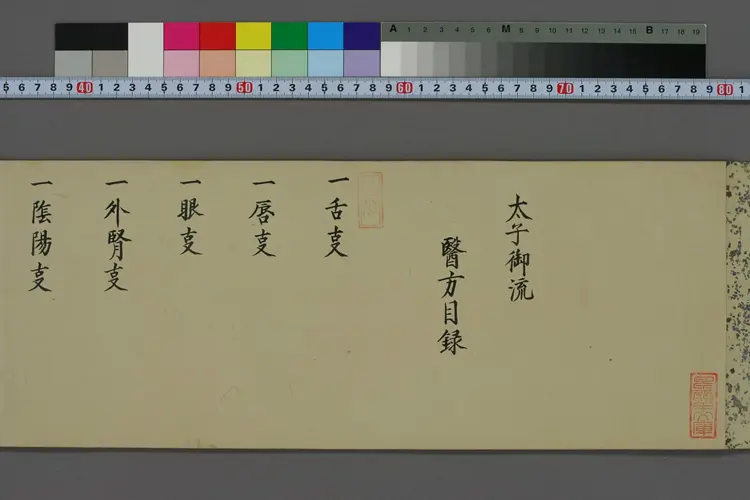 A 1 2 3 4 5 6 M 8 9 10 11 12 13 14 15 B 17 18 19
5 6 7 8 9 40 1 2 3 4 5 6 7 8 9 50 1 2 3 4 5 6 7 8 9 60 1 2 3 4 5 6 7 8 9 70 1 2 3 4 5 6 7 8 9 80 1
太子御流
醫方目録
一舌叓
一唇叓
一眼叓
一外腎叓
一陰陽叓